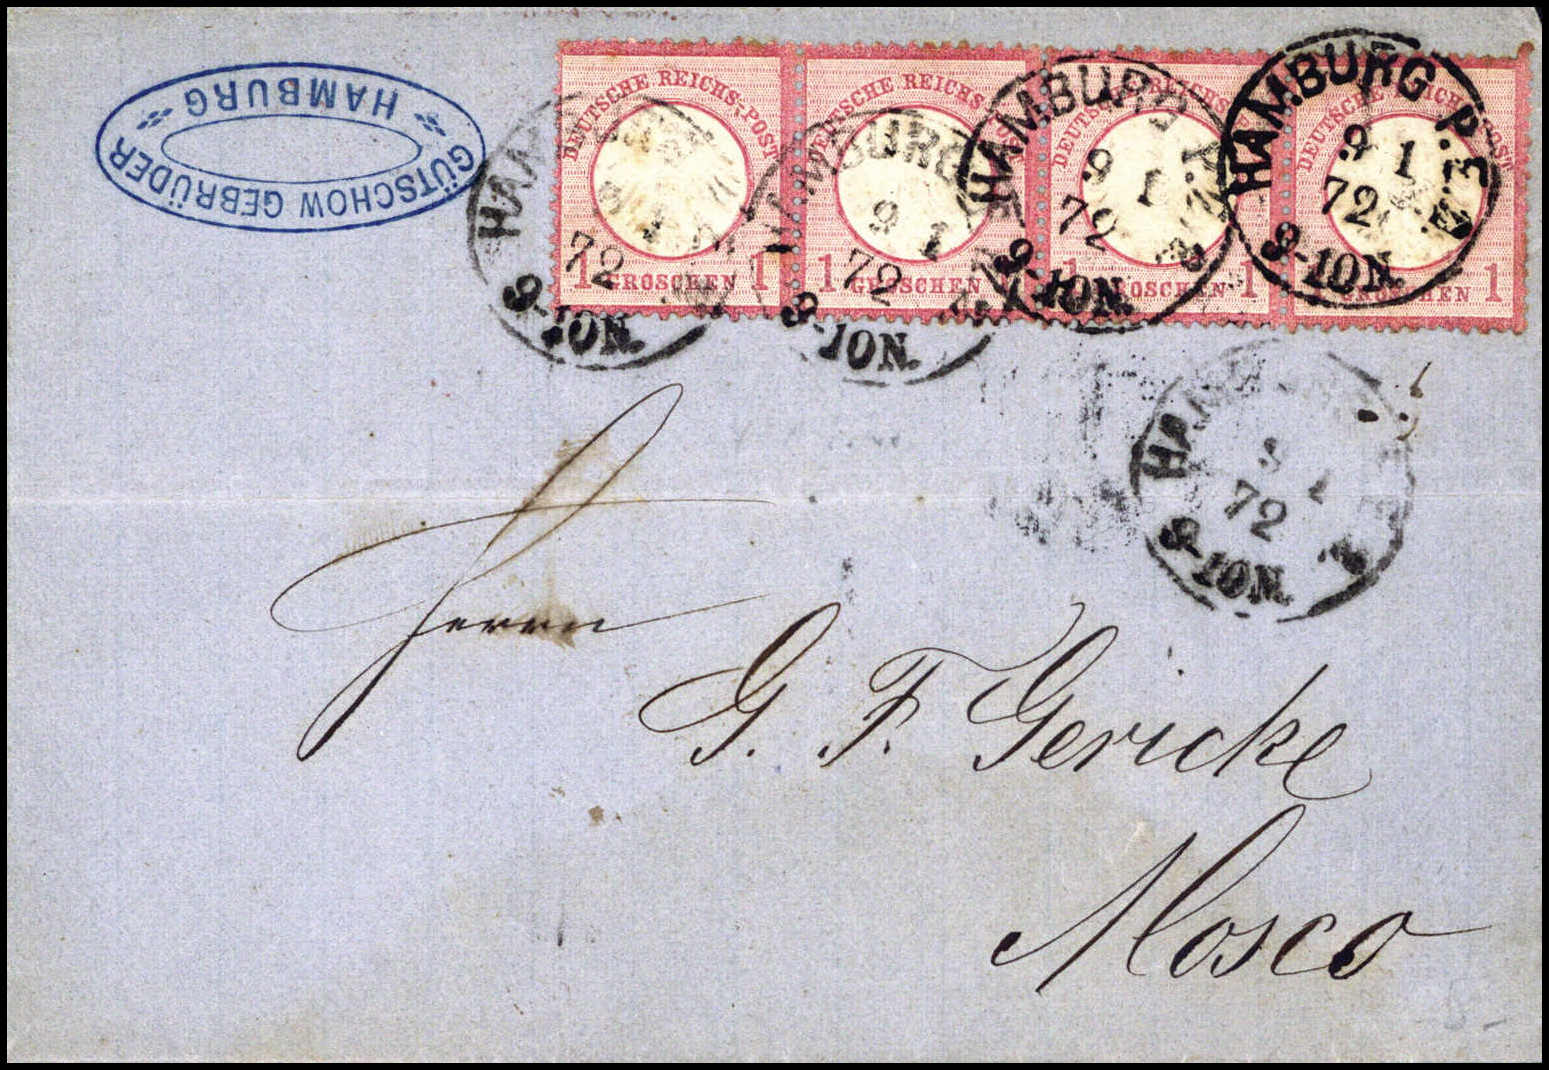 GÜTSCHOW GEBRÜDER
HAMBURG
DEUTSCHE REICHS-POST
1 GROSCHEN 1
DEUTSCHE REICHS-POST
1 GROSCHEN 1
DEUTSCHE REICHS-POST
1 GROSCHEN 1
DEUTSCHE REICHS-POST
1 GROSCHEN 1
HAMBURG
72
9-10N.
HAMBURG
9 1
72
9-10N.
HAMBURG
9 1
72
9-10N.
HAMBURG P.E.3
9 1
72
9-10N.
HAMBURG
72
9-10N.
Herrn
G. F. Gericke
Mosco